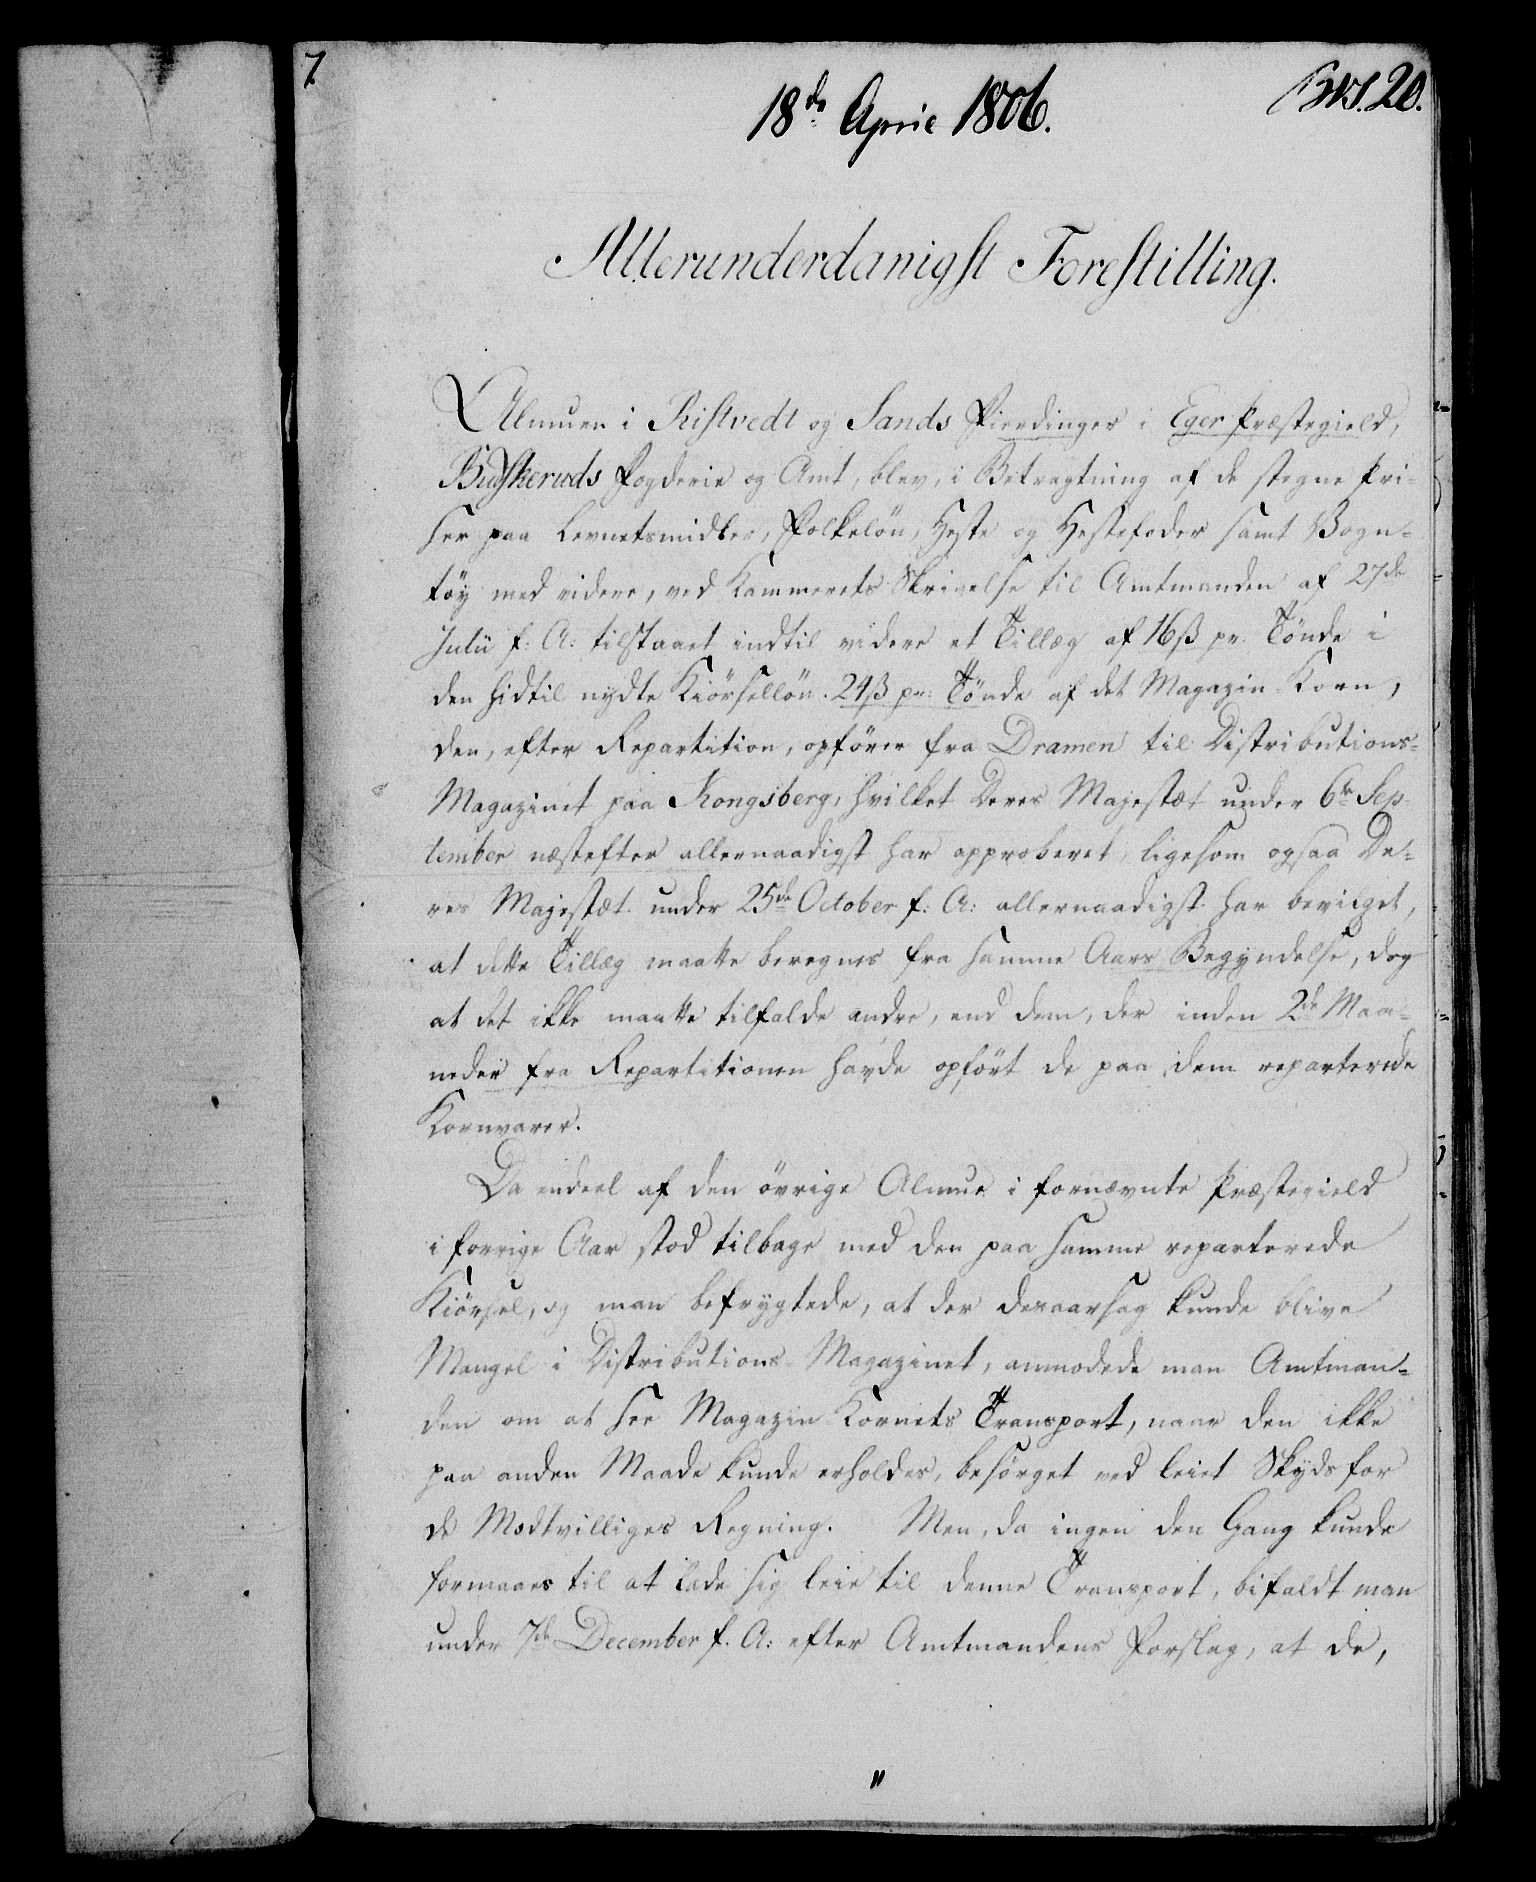 7.
18de April 1806.
BM. 20.
Allerunderdanigst Forestilling.
Almuen i Ristvedt og Sands Fierdinger i Eger Præstegield,
Buskeruds Fogderie og Amt, blev, i Betragtning af de stegne Pri-
ser paa Levnetsmidler, Folkelön, Heste og Hestefoder samt Vogn-
töy med videre, ved Kammerets Skrivelse til Amtmanden af 27de
Julii f: A: tilstaaet indtil videre et Tillæg af 16 ß pr. Tönde i
den hidtil nydte Kiörsellön 24 ß pr: Tönde af det Magazin Korn,
den, efter Repartition, opförer fra Dramen til Distributions-
Magazinet paa Kongsberg, hvilket Deres Majestæt under 6te Sep-
tember næstefter allernaadigst har approberet, ligesom ogsaa De-
res Majestæt under 25de October f: A: allernaadigst har bevilget,
at dette Tillæg maatte beregnes fra samme Aars Begyndelse, dog
at det ikke maatte tilfalde andre, end dem, der inden 2de Maa-
neder fra Repartitionen havde opfört de paa dem reparterede
Kornvarer.
Da endeel af den övrige Almue i fornævnte Præstegield
i forrige Aar stod tilbage med den paa samme reparterede
Kiörsel, og man befrygtede, at der desaarsag kunde blive
Mangel i Distributions-Magazinet, anmodede man Amtman-
den om at see Magazin Kornets Transport, naar den ikke
paa anden Maade kunde erholdes, besörget ved leiet Skyds for
de Modtvilliges Regning. Men, da ingen den Gang kunde
formaaes til at lade sig leie til denne Transport, bifaldt man
under 7de December f. A: efter Amtmandens Forslag, at de,